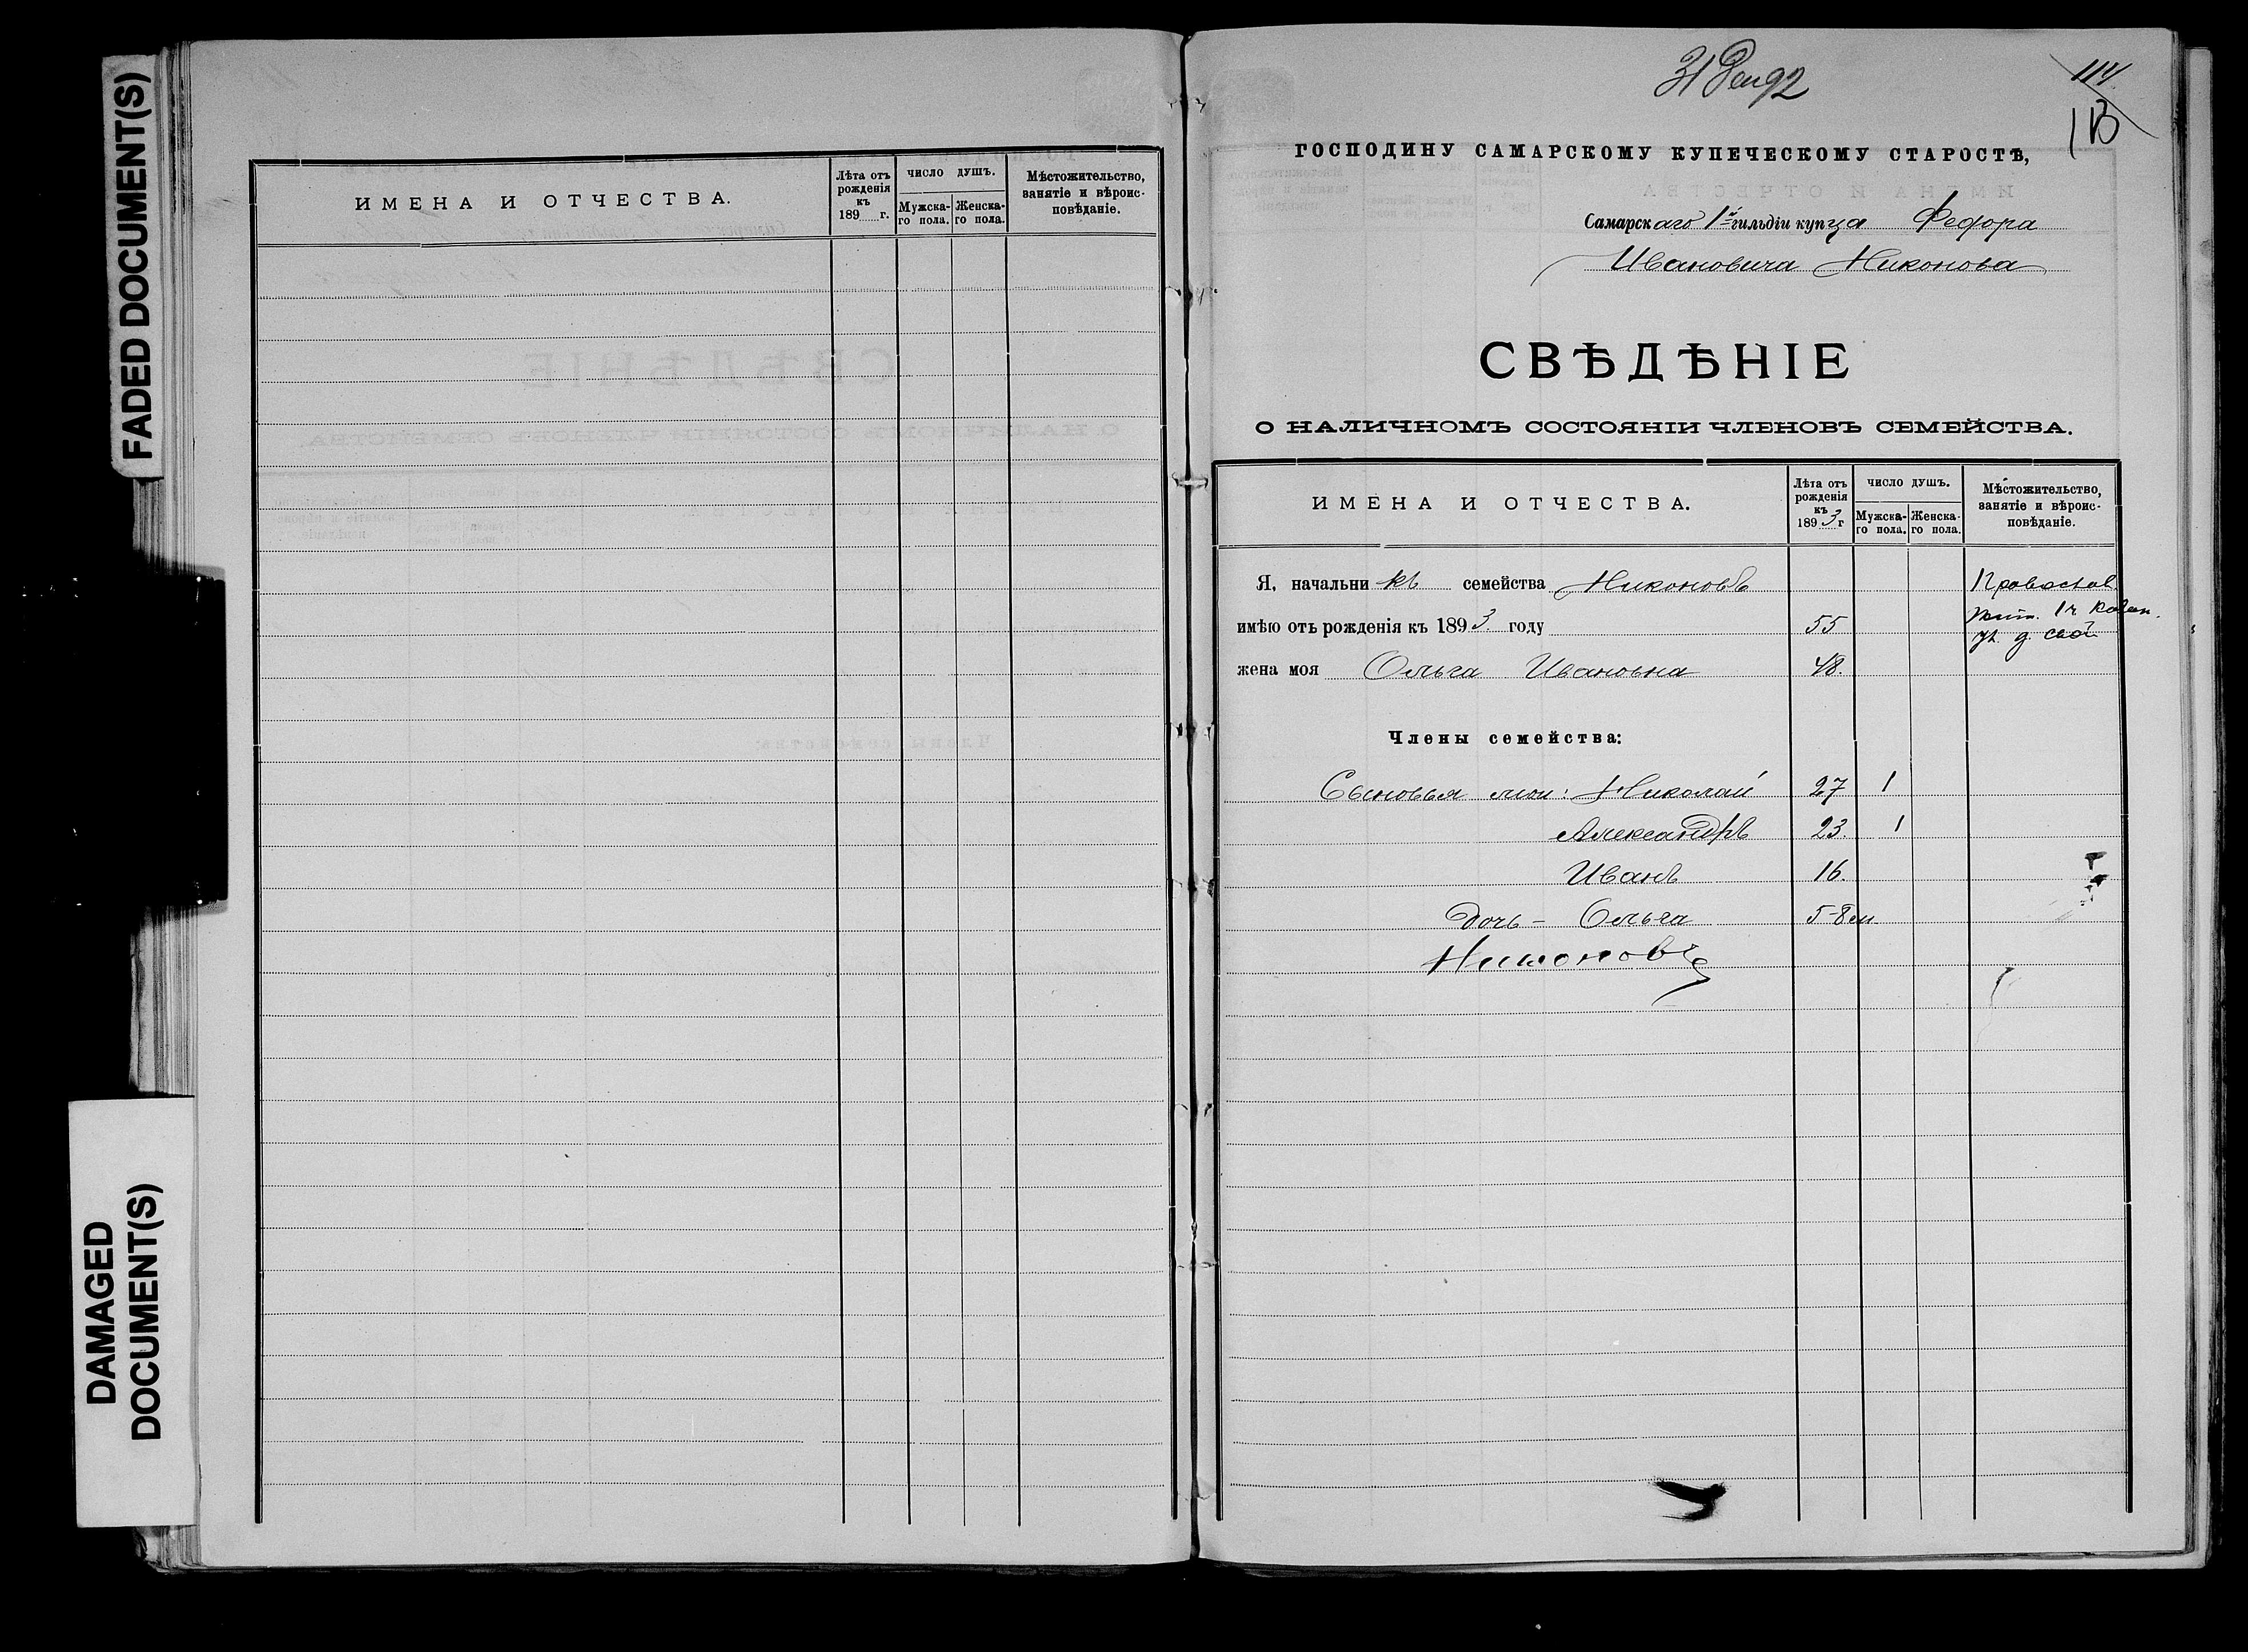 FADED DOCUMENT(S)
DAMAGED
DOCUMENT(S)
ИМЕНА И ОТЧЕСТВА.
Лѣта отъ
рожденія
къ
189 г.
ЧИСЛО ДУШЪ.
Мужска-
го пола.
Женска-
го пола.
Мѣстожительство,
занятіе и вѣроис-
повѣданіе.
31 Дек 92
114
113
ГОСПОДИНУ САМАРСКОМУ КУПЕЧЕСКОМУ СТАРОСТѢ,
Самарскаго 1й гильдіи купца Федора
Ивановича Никонова
СВѢДѢНІЕ
О НАЛИЧНОМЪ СОСТОЯНІИ ЧЛЕНОВЪ СЕМЕЙСТВА.
ИМЕНА И ОТЧЕСТВА.
Лѣта отъ
рожденія
къ
1893 г
ЧИСЛО ДУШЪ.
Мужска-
го пола.
Женска-
го пола.
Мѣстожительство,
занятіе и вѣроис-
повѣданіе.
Я, начальникъ семейства Никоновъ Православ.
имѣю отъ рожденія къ 1893 году 55 Жит. 1 ч Казан.
ул. д. свой
жена моя Ольга Ивановна 48.
Члены семейства:
Сыновья мои: Николай 27 1
Александръ 23. 1
Иванъ 16.
Дочь – Ольга 5-8 м
Никоновъ